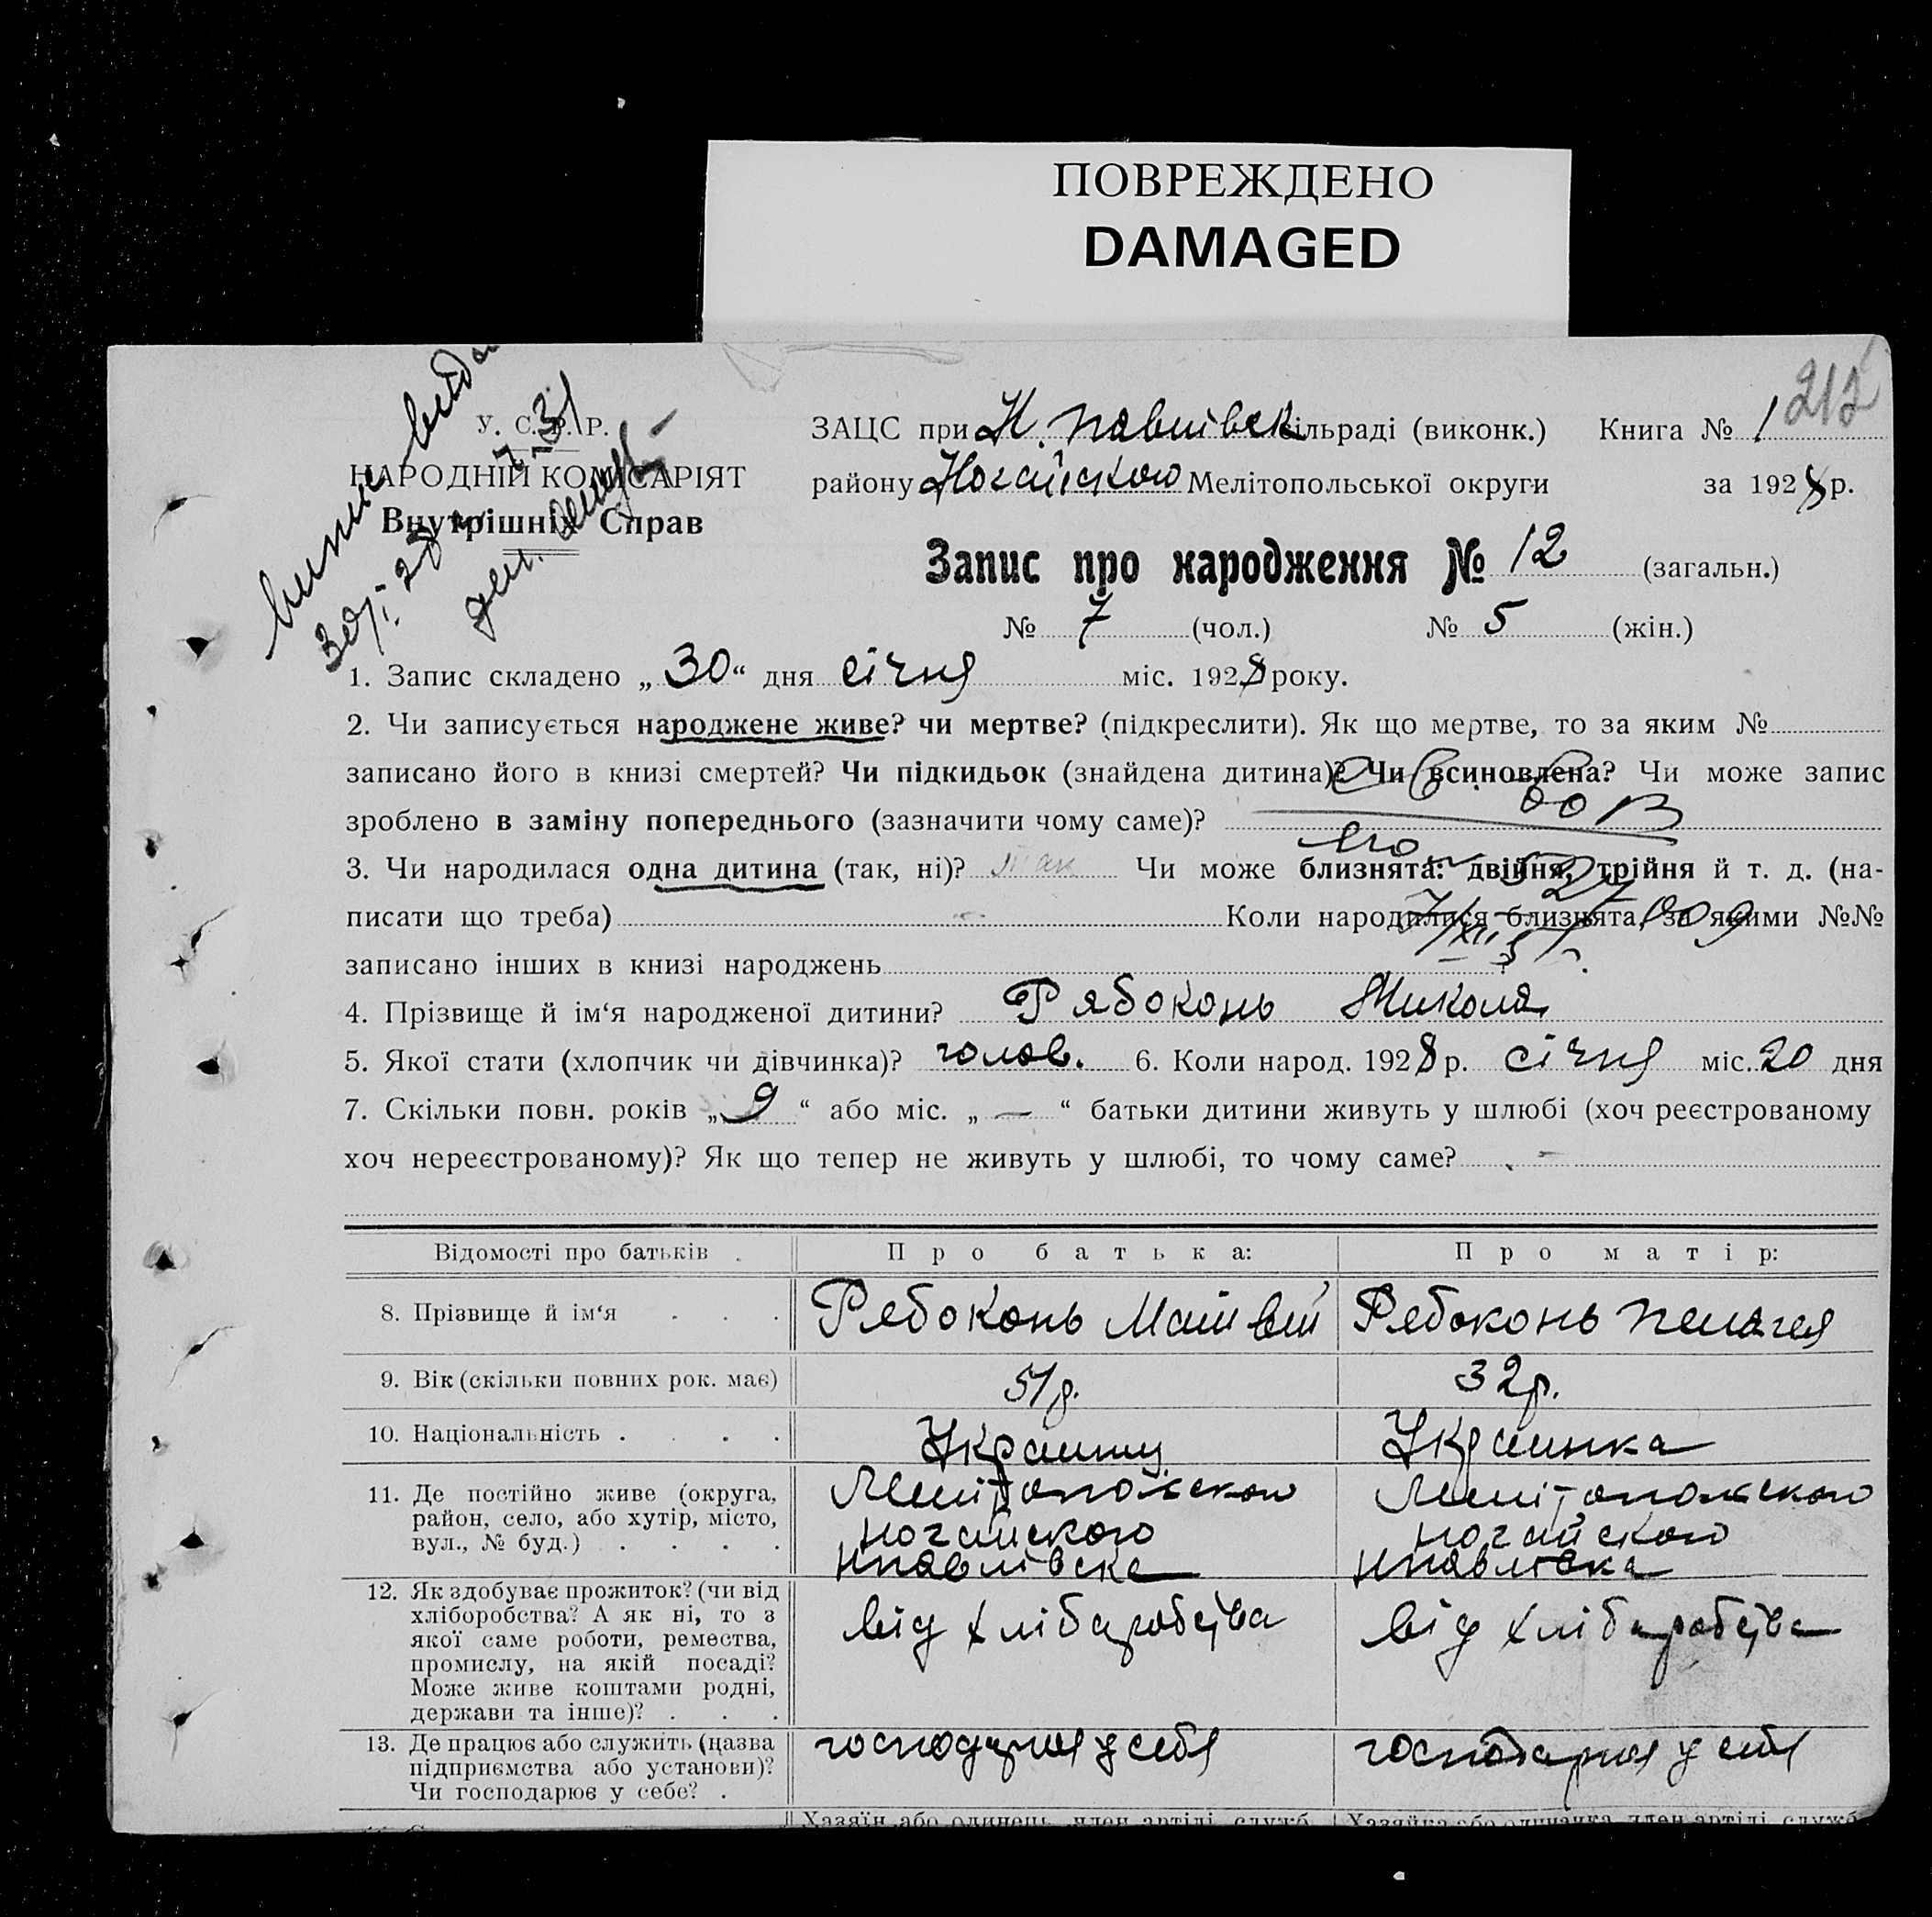 ПОВРЕЖДЕНО
DAMAGED
212
У. С. Р. Р.
НАРОДНІЙ КОМІСАРІЯТ
Внутрішніх Справ
ЗАЦС при Н. Павлівск сільраді (виконк.) Книга № 1
району Ногайського Мелітопольської округи за 1928 р.
Запис про народження № 12 (загальн.)
№ 7 (чол.) № 5 (жін.)
1. Запис складено „30“ дня січня міс. 1928 року.
2. Чи записується народжене живе? чи мертве? (підкреслити). Як що мертве, то за яким №
записано його в книзі смертей? Чи підкидьок (знайдена дитина)? Чи всиновлена? Чи може запис
зроблено в заміну попереднього (зазначити чому саме)?
3. Чи народилася одна дитина (так, ні)? так Чи може близнята: двійня, трійня й т. д. (на-
писати що треба) Коли народилися близнята, за якими №№
записано інших в книзі народжень
4. Прізвище й ім‘я народженої дитини? Рябоконь Микола
5. Якої стати (хлопчик чи дівчинка)? чолов. 6. Коли народ. 1928 р. січня міс. 20 дня
7. Скільки повн. років „9“ або міс. „—“ батьки дитини живуть у шлюбі (хоч реєстрованому
хоч нереєстрованому)? Як що тепер не живуть у шлюбі, то чому саме? -
Відомості про батьків Про батька: Про матір:
8. Прізвище й ім‘я . . . Рябоконь Матвій Рябоконь Пелагея
9. Вік (скільки повних рок. має) 51 р. 32 р.
10. Національність . . . . Українц Українка
11. Де постійно живе (округа, Мелітопольского Мелітопольского
район, село, або хутір, місто, Ногайского Ногайского
вул., № буд.) . . . . Нпавлівска Нпавлівка
12. Як здобуває прожиток? (чи від
хліборобства? А як ні, то з від хліборобства від хліборобства
якої саме роботи, ремества,
промислу, на якій посаді?
Може живе коштами родні,
держави та інше)? . . .
13. Де працює або служить (назва господарює у себе господарює у себе
підприємства або установи)?
Чи господарює у себе? .
Хазяїн або одинець, член артілі, служб. Хазяйка або одиначка, член артілі, служб.